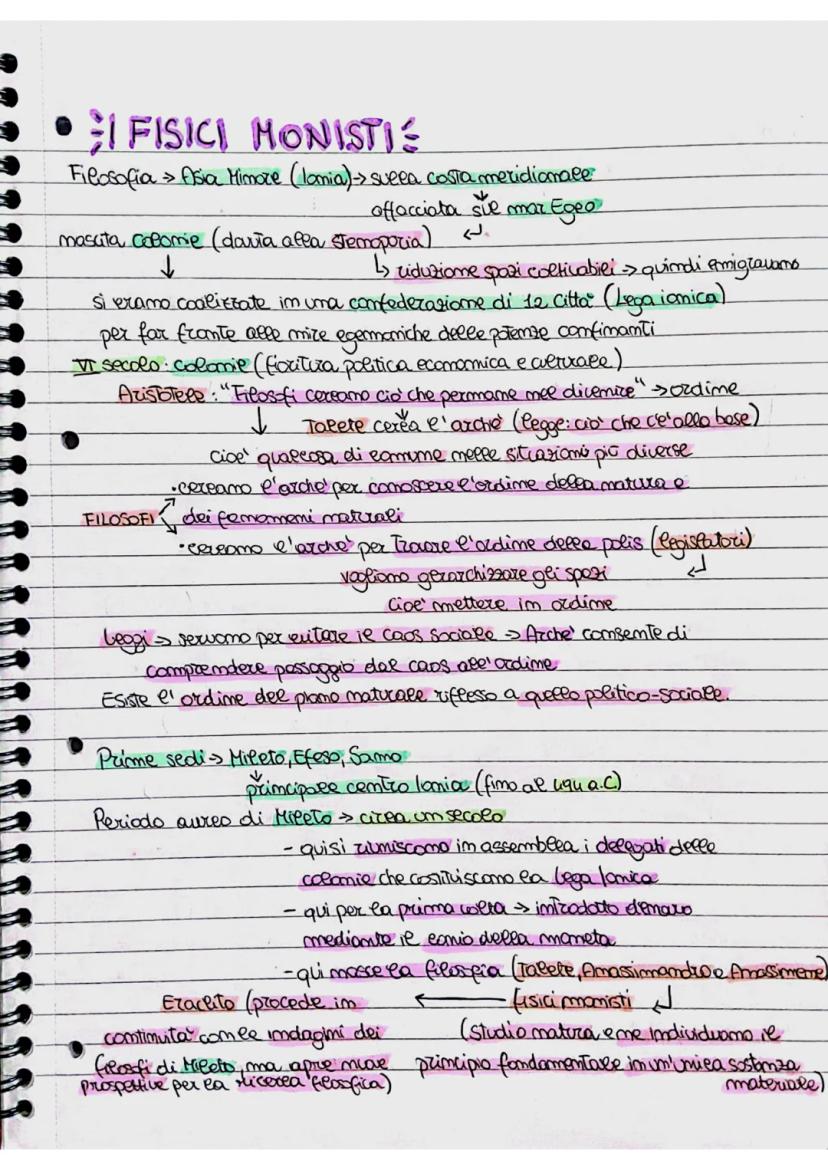 I FISICI MONISTI
Filosofia → Asia Minore (Ionia) → sulla costa meridionale
affacciata sul mar Egeo
nascita colonie (dovuta alla stenoporia)
↳ riduzione spazi coltivabili → quindi emigravano
si erano coalizzate in una confederazione di 12 città (Lega ionica)
per far fronte alle mire egemoniche delle potenze confinanti
VI secolo: colonie (fioritura politica economica e culturale)
Aristotele: "Filosofi cercano ciò che permane nel divenire" → ordine
Talete cerca l'archè (legge: ciò che c'è alla base)
cioè qualcosa di comune nelle situazioni più diverse
• cercano l'archè per conoscere l'ordine della natura e
FILOSOFI dei fenomeni naturali
• cercano l'archè per trovare l'ordine della polis (legislatori)
vogliono gerarchizzare gli spazi
cioè mettere in ordine
Leggi → servono per evitare il caos sociale → Archè consente di
comprendere passaggio dal caos all'ordine
Esiste l'ordine del piano naturale riflesso a quello politico-sociale.
Prime sedi → Mileto, Efeso, Samo
principale centro Ionia (fino al 494 a.C)
Periodo aureo di Mileto → circa un secolo
- qui si riuniscono in assemblea i delegati delle
colonie che costituiscono la Lega Ionica
- qui per la prima volta → introdotto denaro
mediante il conio della moneta
- qui nasce la filosofia (Talete, Anassimandro e Anassimene)
Eraclito (procede in ← fisici monisti
continuità con le indagini dei (studio natura e ne individuano il
filosofi di Mileto, ma apre nuove principio fondamentale in un'unica sostanza
prospettive per la ricerca filosofica) materiale)